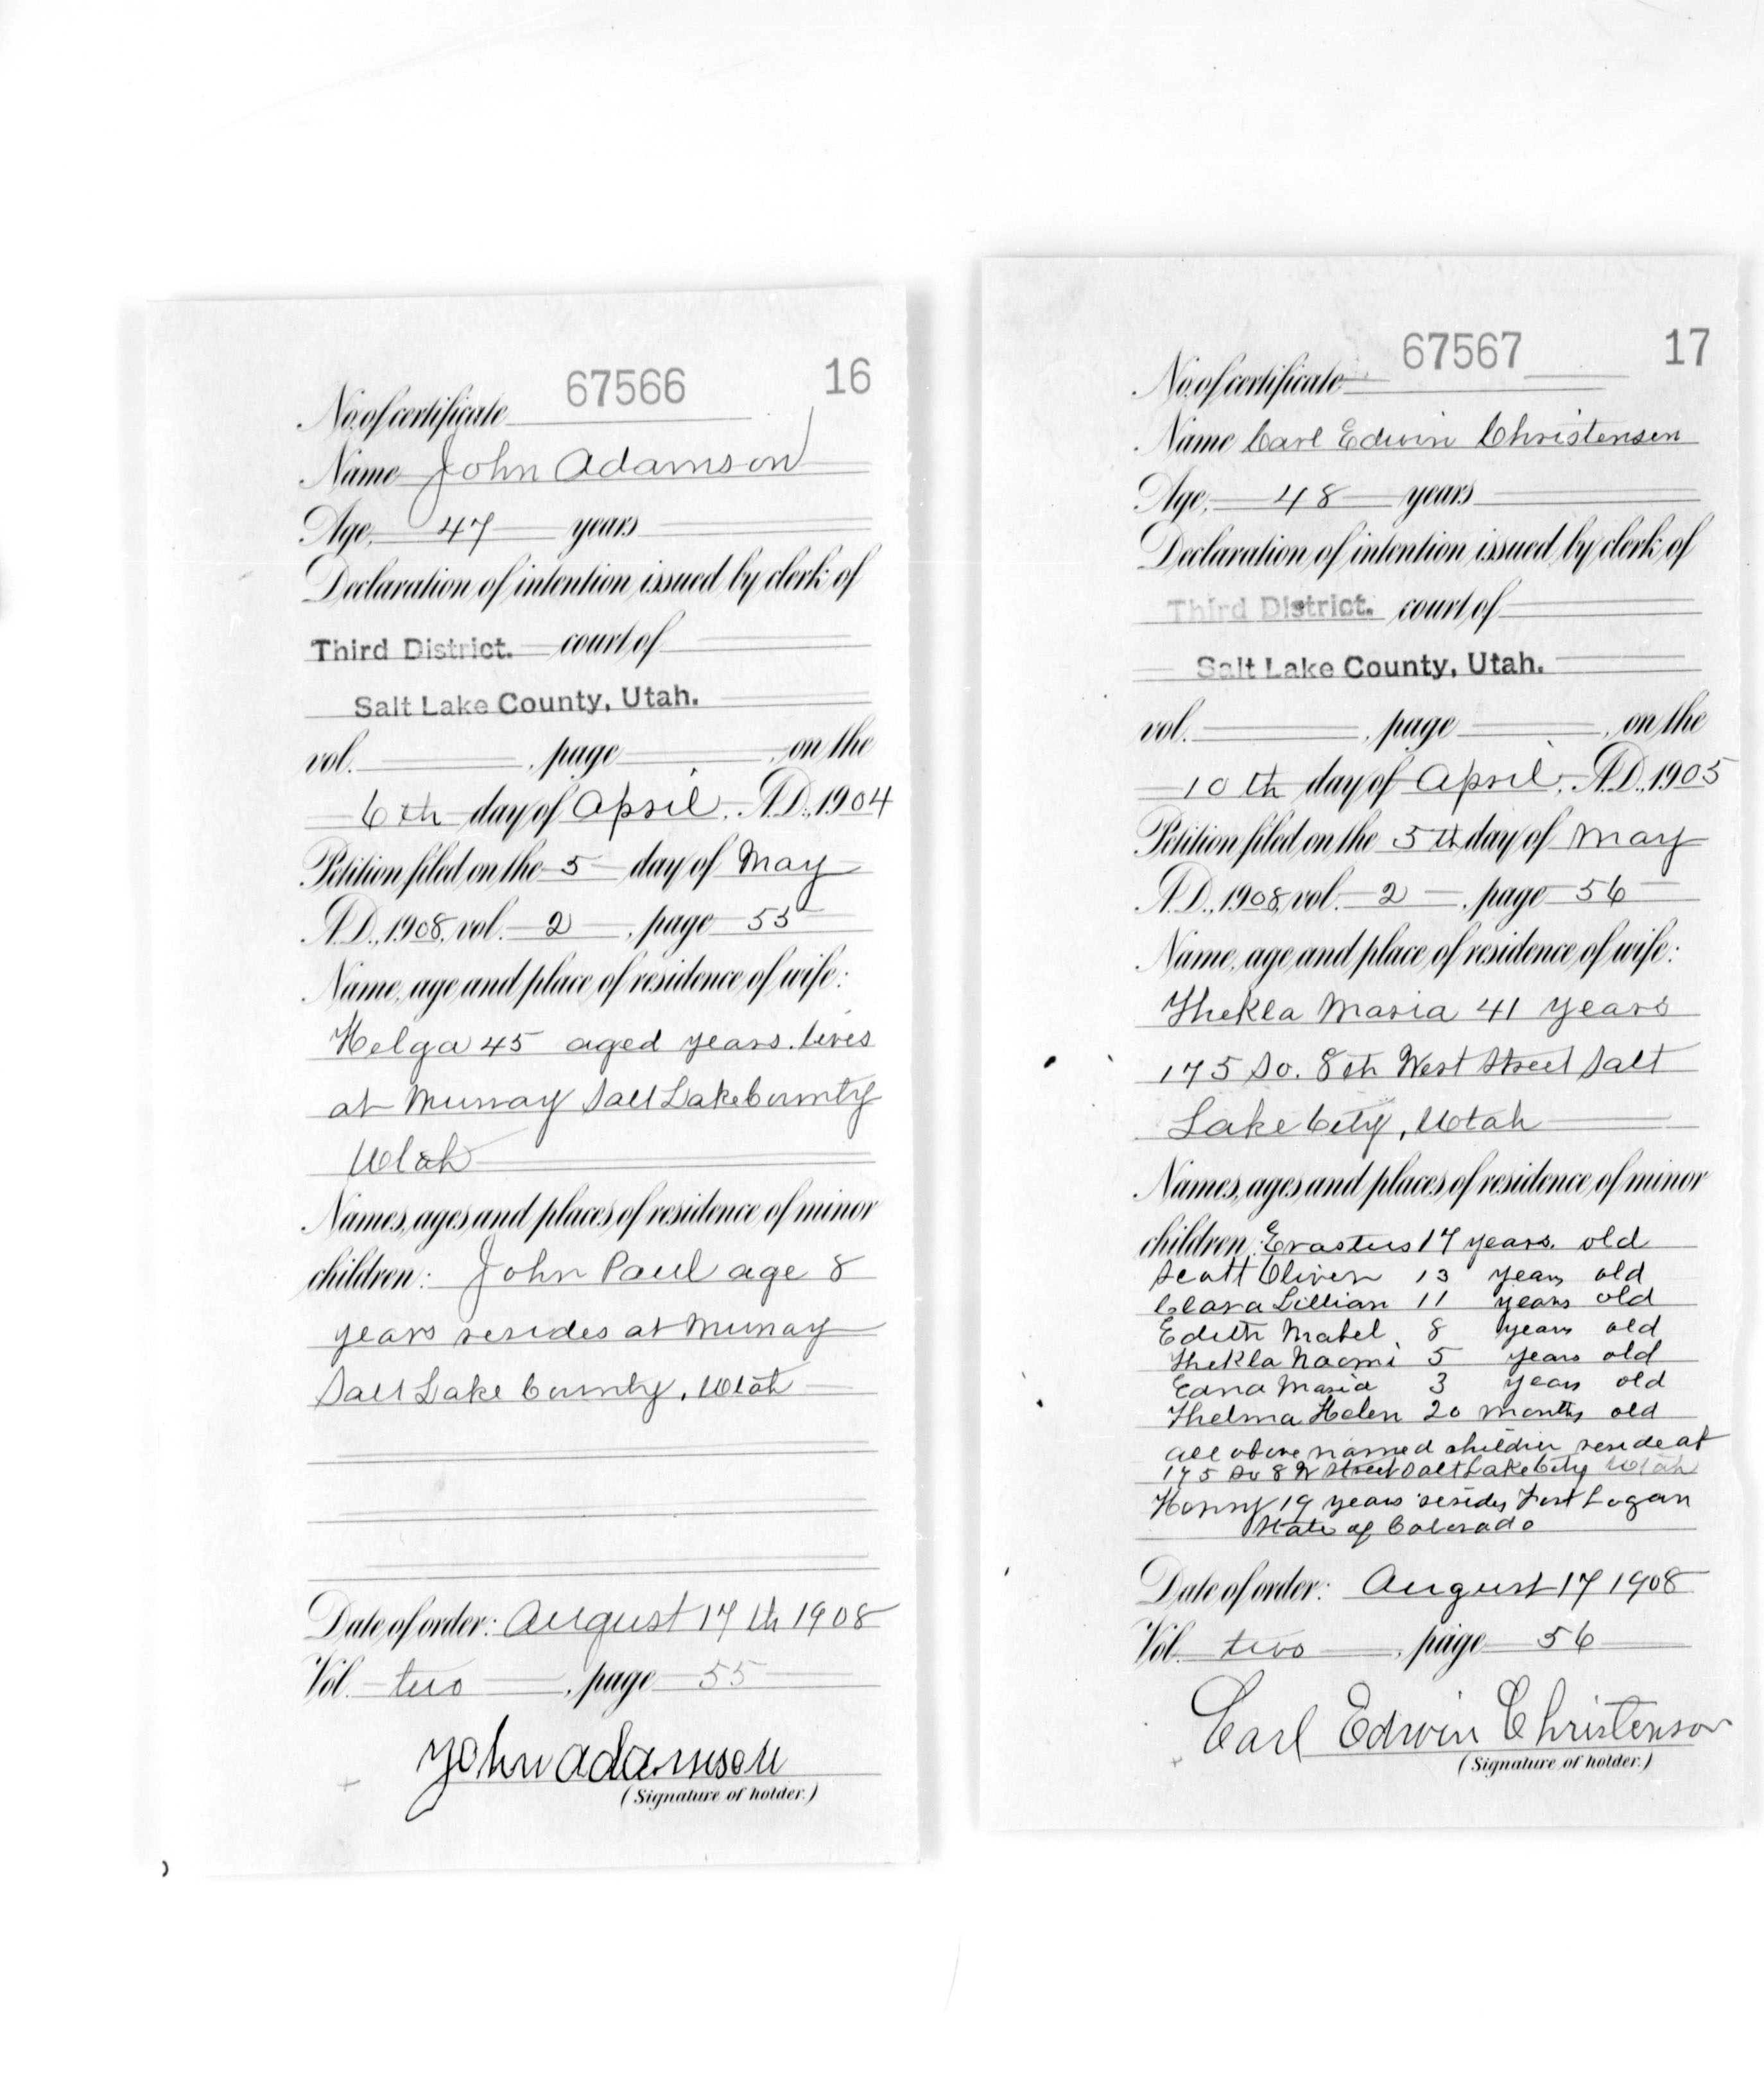 67566 16
No. of certificate
Name John Adamson
Age, 47 years
Declaration of intention issued by clerk of
Third District. court of
Salt Lake County, Utah.
vol. , page , on the
6th day of April, A.D., 1904
Petition filed on the 5 day of May
A.D., 1908, vol. 2 , page 55
Name, age and place of residence of wife:
Helga 45 aged years. lives
at Murray Salt Lake County
Utah
Names, ages and places of residence of minor
children: John Paul age 8
years resides at Murray
Salt Lake County, Utah
Date of order: August 17th 1908
Vol. two , page 55
John Adamson
(Signature of holder.)
67567 17
No. of certificate
Name Carl Edwin Christensen
Age, 48 years
Declaration of intention issued by clerk of
Third District. court of
Salt Lake County, Utah.
vol. , page , on the
10th day of April, A.D., 1905
Petition filed on the 5th day of May
A.D., 1908, vol. 2 , page 56
Name, age and place of residence of wife:
Thekla Maria 41 years
175 So. 8th West Street Salt
Lake City, Utah
Names, ages and places of residence of minor
children: Erastus 17 years. old
Scott Oliver 13 years old
Clara Lillian 11 years old
Edith Mabel 8 years old
Thekla Naomi 5 years old
Edna Maria 3 years old
Thelma Helen 20 months old
all above named children reside at
175 So 8 W Street Salt Lake City Utah
Henry 19 years resides Fort Logan
State of Colorado
Date of order: August 17 1908
Vol. two , page 56
Carl Edwin Christenson
(Signature of holder.)